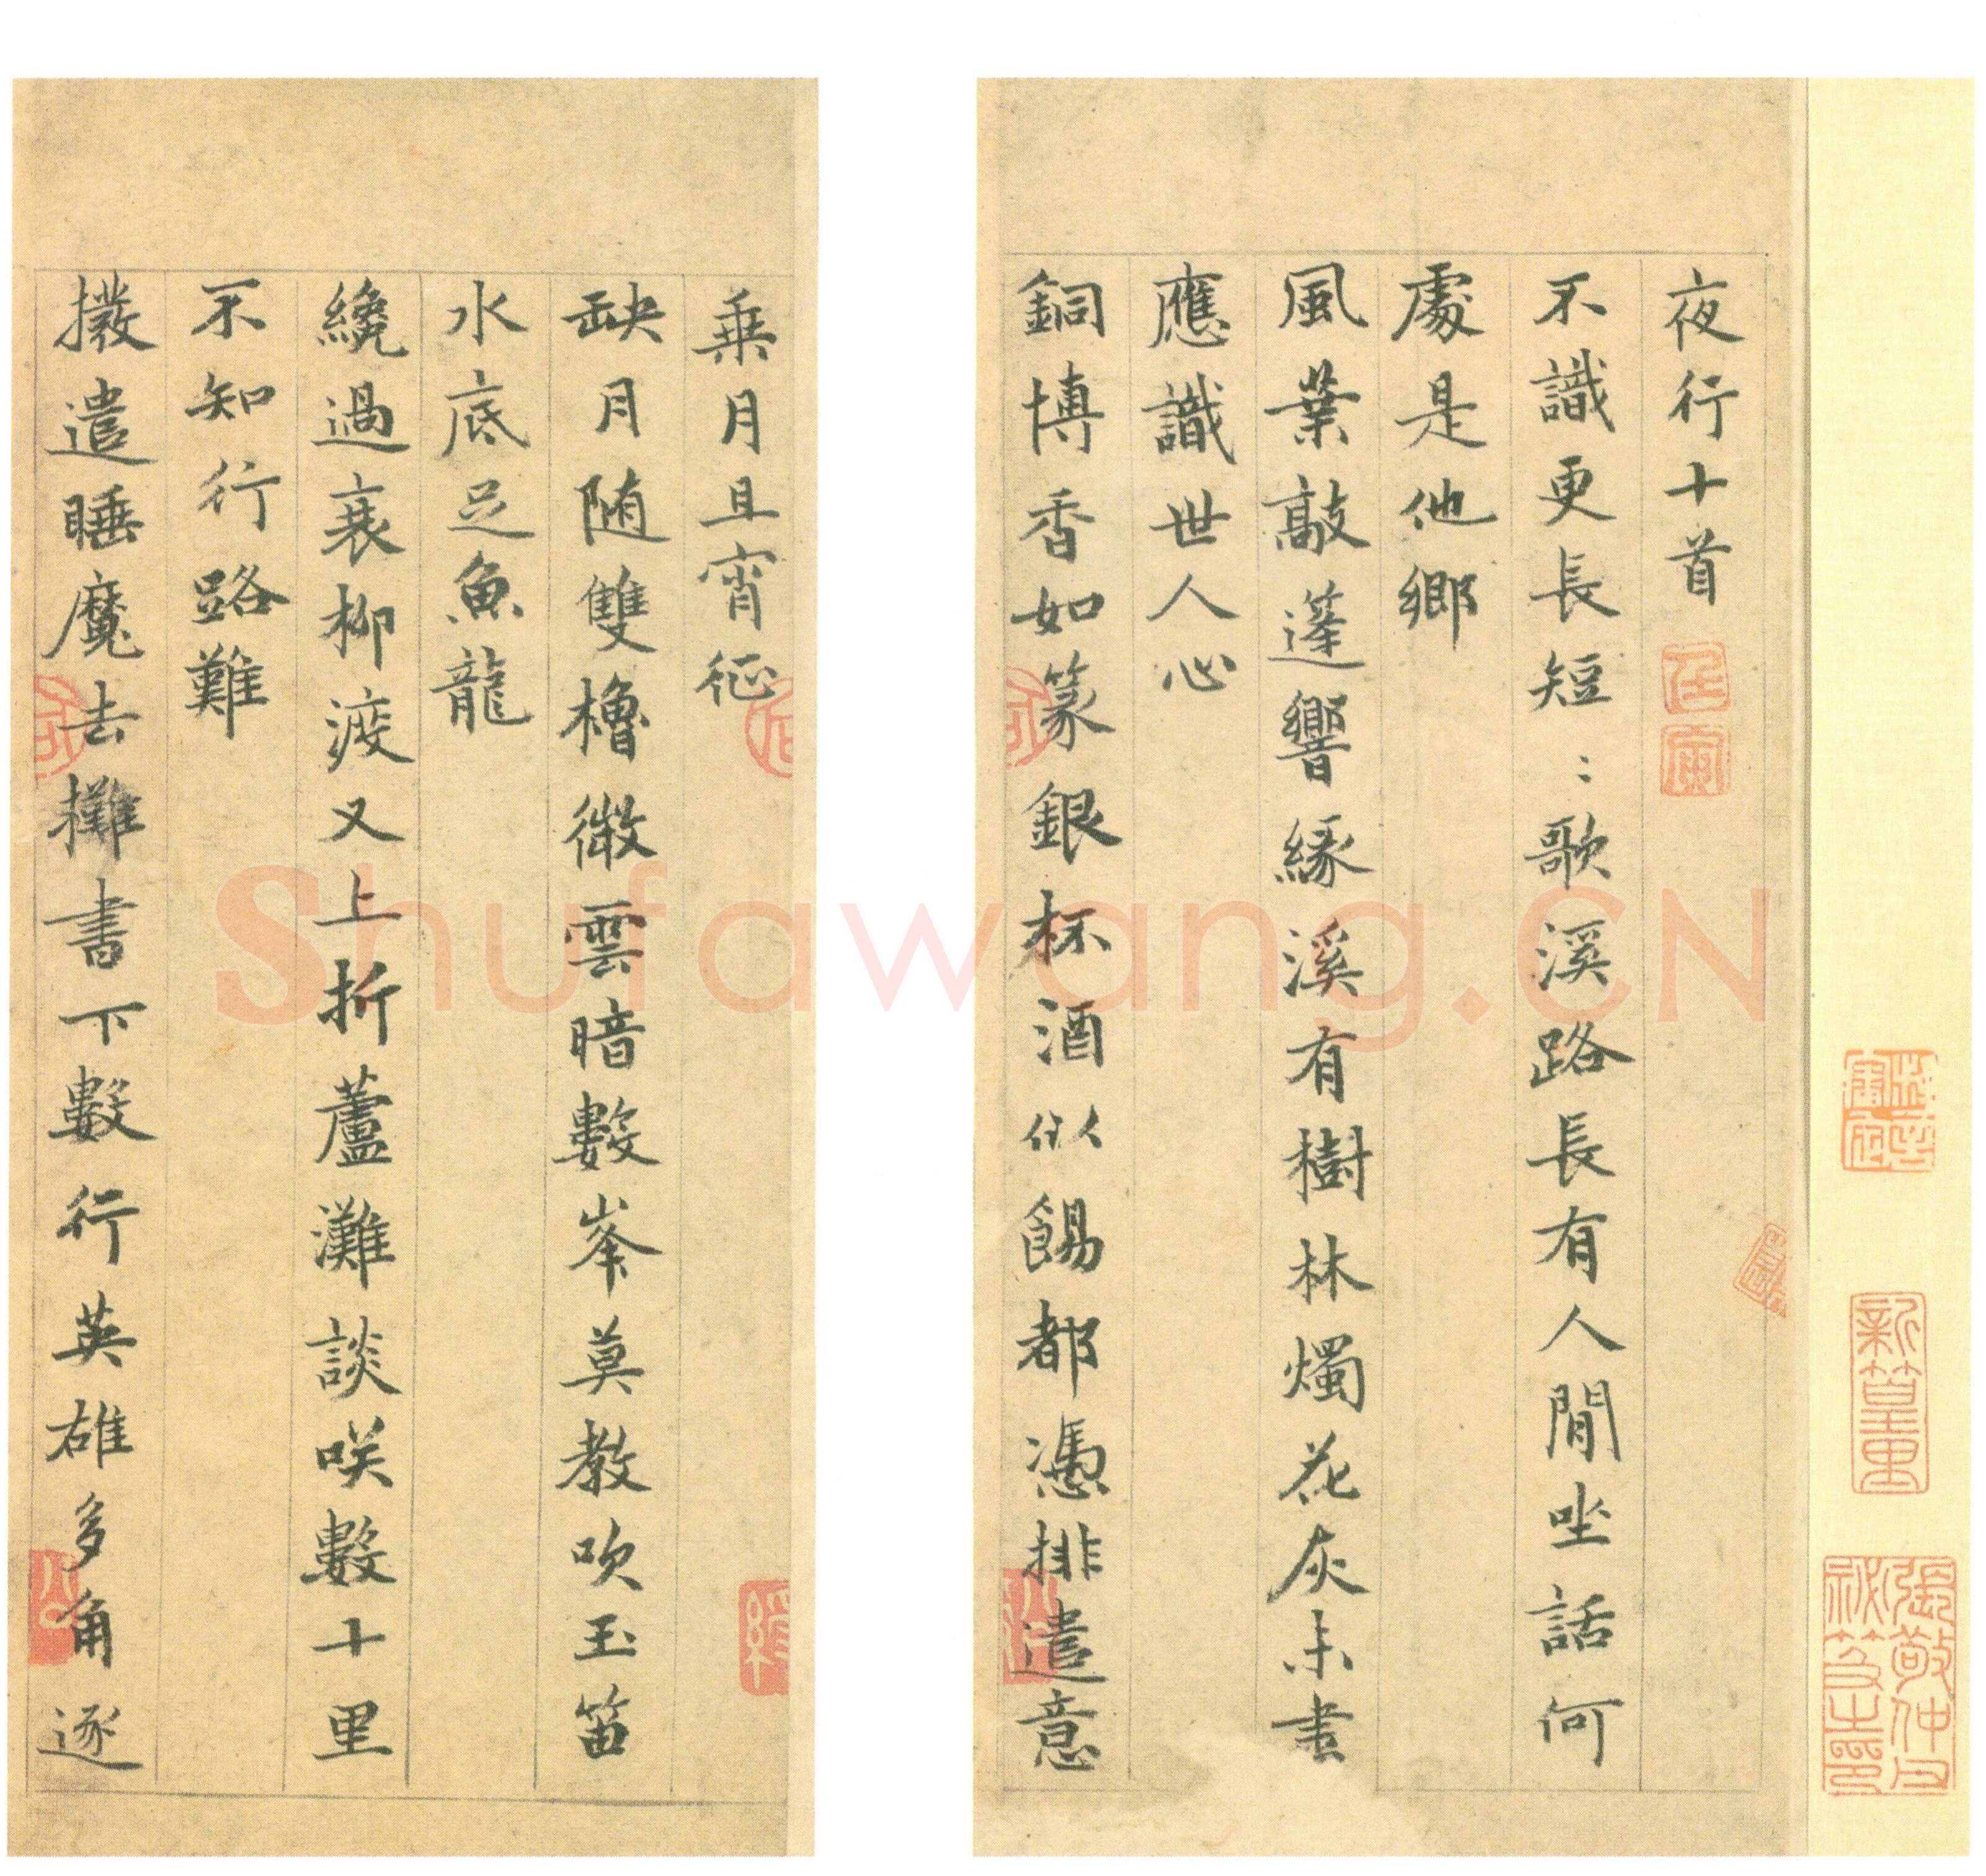 夜行十首
不識更長短〻歌溪路長有人閒坐話何
處是他鄉
風葉敲篷響緣溪有樹林燭花灰未盡
應識世人心
銅博香如篆銀杯酒似餳都憑排遣意
乘月且宵征
缺月随雙櫓微雲暗數峯莫教吹玉笛
水底足魚龍
纔過衰柳渡又上折蘆灘談咲數十里
不知行路難
撥遣睡魔去攤書下數行英雄多角逐
Shufawang.CN